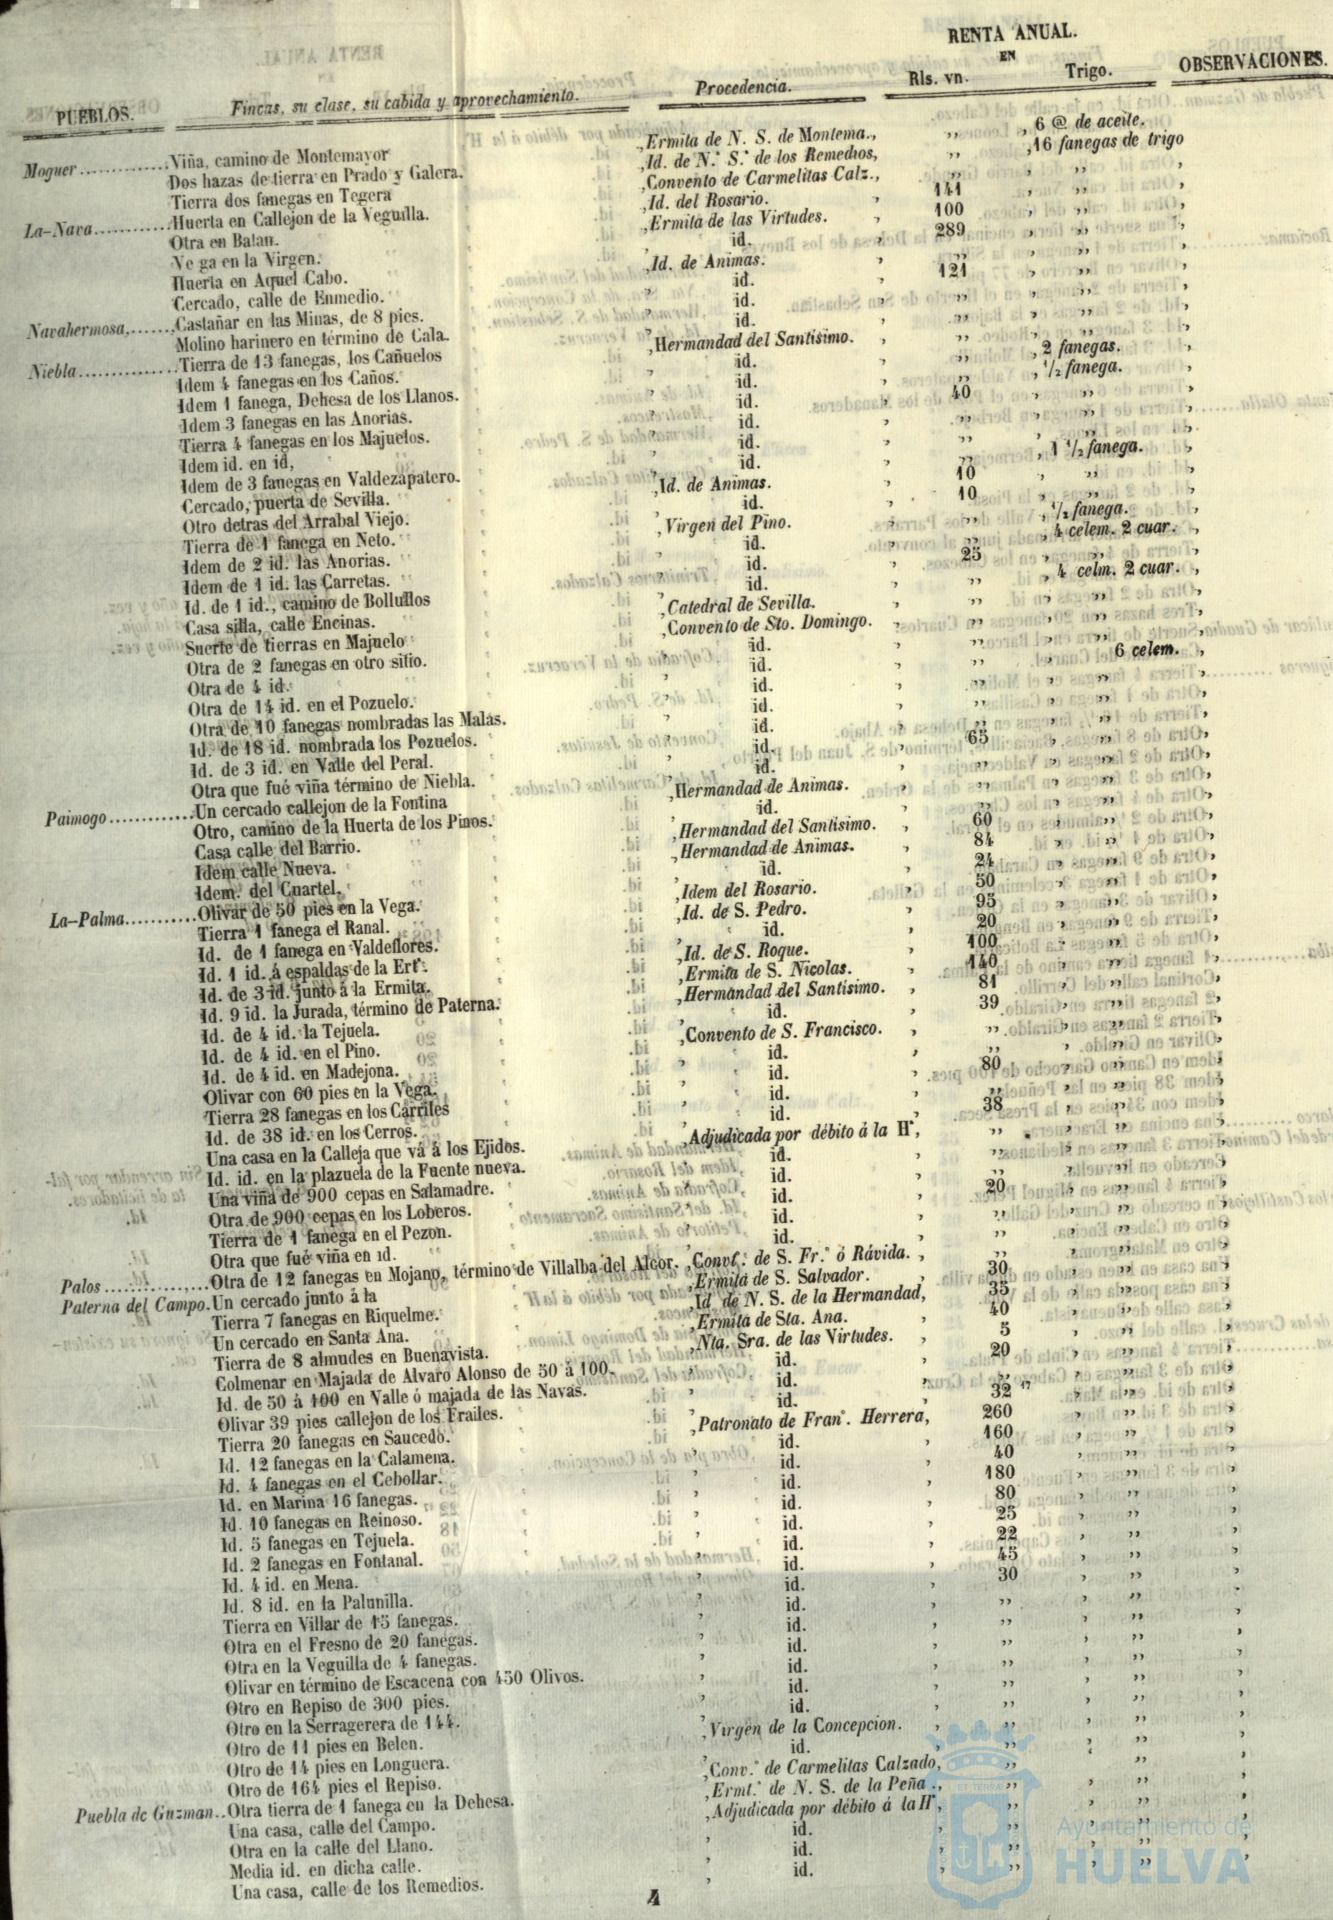 RENTA ANUAL.
EN
PUEBLOS. Fincas, su clase, su cabida y aprovechamiento. Procedencia. Rls. vn. Trigo. OBSERVACIONES.
Moguer..............Viña, camino de Montemayor ,Ermita de N. S. de Montema., ,, , 6 @ de aceite.
Dos hazas de tierra en Prado y Galera. ,Id. de N.ª S.ª de los Remedios, ,, ,16 fanegas de trigo
Tierra dos fanegas en Tegera ,Convento de Carmelitas Calz., ,, , ,, ,
La-Nava............Huerta en Callejon de la Veguilla. ,Id. del Rosario. , 141 , ,, ,
Otra en Batan. ,Ermita de las Virtudes. , 100 , ,, ,
Vega en la Virgen. , id. , 289 , ,, ,
Huerta en Aquel Cabo. ,Id. de Animas. , ,, , ,, ,
Cercado, calle de Enmedio. , id. , 121 , ,, ,
Navahermosa,.......Castañar en las Minas, de 8 pies. , id. , ,, , ,, ,
Molino harinero en término de Cala. , id. , ,, , ,, ,
Niebla...............Tierra de 13 fanegas, los Cañuelos ,Hermandad del Santísimo. , ,, , ,, ,
Idem 4 fanegas en los Caños. , id. , ,, , 2 fanegas. ,
Idem 1 fanega, Dehesa de los Llanos. , id. , ,, , 1/2 fanega. ,
Idem 3 fanegas en las Anorias. , id. , 40 , ,, ,
Tierra 4 fanegas en los Majuelos. , id. , ,, , ,, ,
Idem id. en id, , id. , ,, , ,, ,
Idem de 3 fanegas en Valdezapatero. , id. , ,, , 1 1/2 fanega. ,
Cercado, puerta de Sevilla. ,Id. de Animas. , 10 , ,, ,
Otro detras del Arrabal Viejo. , id. , 10 , ,, ,
Tierra de 1 fanega en Neto. ,Virgen del Pino. , ,, , 1/2 fanega. ,
Idem de 2 id. las Anorias. , id. , ,, , 4 celem. 2 cuar. ,
Idem de 1 id. las Carretas. , id. , 25 , ,, ,
Id. de 1 id., camino de Bollullos , id. , ,, , 4 celm. 2 cuar. ,
Casa silla, calle Encinas. ,Catedral de Sevilla. , ,, , ,, ,
Suerte de tierras en Majuelo ,Convento de Sto. Domingo. , ,, , ,, ,
Otra de 2 fanegas en otro sitio. , id. , ,, , ,, ,
Otra de 4 id. , id. , ,, , 6 celem. ,
Otra de 14 id. en el Pozuelo. , id. , ,, , ,, ,
Otra de 10 fanegas nombradas las Malas. , id. , ,, , ,, ,
Id. de 18 id. nombrada los Pozuelos. , id. , ,, , ,, ,
Id. de 3 id. en Valle del Peral. , id. , 65 , ,, ,
Otra que fué viña término de Niebla. , id. , ,, , ,, ,
Paimogo.............Un cercado callejon de la Fontina ,Hermandad de Animas. , ,, , ,, ,
Otro, camino de la Huerta de los Pinos. , id. , ,, , ,, ,
Casa calle del Barrio. ,Hermandad del Santísimo. , 60 , ,, ,
Idem calle Nueva. ,Hermandad de Animas. , 84 , ,, ,
Idem. del Cuartel. , id. , 24 , ,, ,
La-Palma...........Olivar de 50 pies en la Vega. ,Idem del Rosario. , 50 , ,, ,
Tierra 1 fanega el Ranal. ,Id. de S. Pedro. , 95 , ,, ,
Id. de 1 fanega en Valdeflores. , id. , 20 , ,, ,
Id. 1 id. á espaldas de la Ert.ª ,Id. de S. Roque. , 100 , ,, ,
Id. de 3 id. junto á la Ermita. ,Ermita de S. Nicolas. , 140 , ,, ,
Id. 9 id. la Jurada, término de Paterna. ,Hermandad del Santísimo. , 81 , ,, ,
Id. de 4 id. la Tejuela. , id. , 39 , ,, ,
Id. de 4 id. en el Pino. ,Convento de S. Francisco. , ,, , ,, ,
Id. de 4 id. en Madejona. , id. , ,, , ,, ,
Olivar con 60 pies en la Vega. , id. , 80 , ,, ,
Tierra 28 fanegas en los Carriles , id. , ,, , ,, ,
Id. de 38 id. en los Cerros. , id. , 38 , ,, ,
Una casa en la Calleja que vá á los Ejidos. ,Adjudicada por débito á la Hª, ,, , ,, ,
Id. id. en la plazuela de la Fuente nueva. , id. , ,, , ,, ,
Una viña de 900 cepas en Salamadre. , id. , ,, , ,, ,
Otra de 900 cepas en los Loberos. , id. , 20 , ,, ,
Tierra de 1 fanega en el Pezon. , id. , ,, , ,, ,
Otra que fué viña en id. , id. , ,, , ,, ,
Palos...............Otra de 12 fanegas en Mojano, término de Villalba del Alcor. ,Convt.º de S. Fr.º ó Rávida. , ,, , ,, ,
Paterna del Campo.Un cercado junto á la ,Ermita de S. Salvador. , 30 , ,, ,
Tierra 7 fanegas en Riquelme. ,Id de N. S. de la Hermandad, 35 , ,, ,
Un cercado en Santa Ana. ,Ermita de Sta. Ana. , 40 , ,, ,
Tierra de 8 almudes en Buenavista. ,Nta. Sra. de las Virtudes. , 5 , ,, ,
Colmenar en Majada de Alvaro Alonso de 50 á 100. , id. , 20 , ,, ,
Id. de 50 á 100 en Valle ó majada de las Navas. , id. , ,, , ,, ,
Olivar 39 pies callejon de los Frailes. , id. , 32 17 , ,, ,
Tierra 20 fanegas en Saucedo. ,Patronato de Fran.º Herrera, 260 , ,, ,
Id. 12 fanegas en la Calamena. , id. , 160 , ,, ,
Id. 4 fanegas en el Cebollar. , id. , 40 , ,, ,
Id. en Marina 16 fanegas. , id. , 180 , ,, ,
Id. 10 fanegas en Reinoso. , id. , 80 , ,, ,
Id. 5 fanegas en Tejuela. , id. , 25 , ,, ,
Id. 2 fanegas en Fontanal. , id. , 22 , ,, ,
Id. 4 id. en Mena. , id. , 45 , ,, ,
Id. 8 id. en la Palunilla. , id. , 30 , ,, ,
Tierra en Villar de 15 fanegas. , id. , ,, , ,, ,
Otra en el Fresno de 20 fanegas. , id. , ,, , ,, ,
Otra en la Veguilla de 4 fanegas. , id. , ,, , ,, ,
Olivar en término de Escacena con 450 Olivos. , id. , ,, , ,, ,
Otro en Repiso de 300 pies. , id. , ,, , ,, ,
Otro en la Serragerera de 144. , id. , ,, , ,, ,
Otro de 11 pies en Belen. ,Virgen de la Concepcion. , ,, , ,, ,
Otro de 14 pies en Longuera. , id. , ,, , ,, ,
Otro de 164 pies el Repiso. ,Conv.º de Carmelitas Calzado, ,, , ,, ,
Puebla de Guzman..Otra tierra de 1 fanega en la Dehesa. ,Ermt.ª de N. S. de la Peña ., ,, , ,, ,
Una casa, calle del Campo. ,Adjudicada por débito á la Hª, ,, , ,, ,
Otra en la calle del Llano. , id. , ,, , ,, ,
Media id. en dicha calle. , id. , ,, , ,, ,
Una casa, calle de los Remedios. , id. , ,, , ,, ,
4
Ayuntamiento de
HUELVA